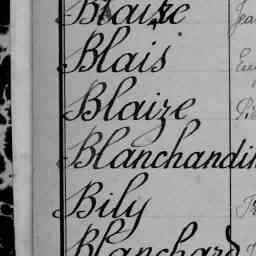 Blaize Jea
Blais
Blaize
Blanchandin
Bily
Blanchard